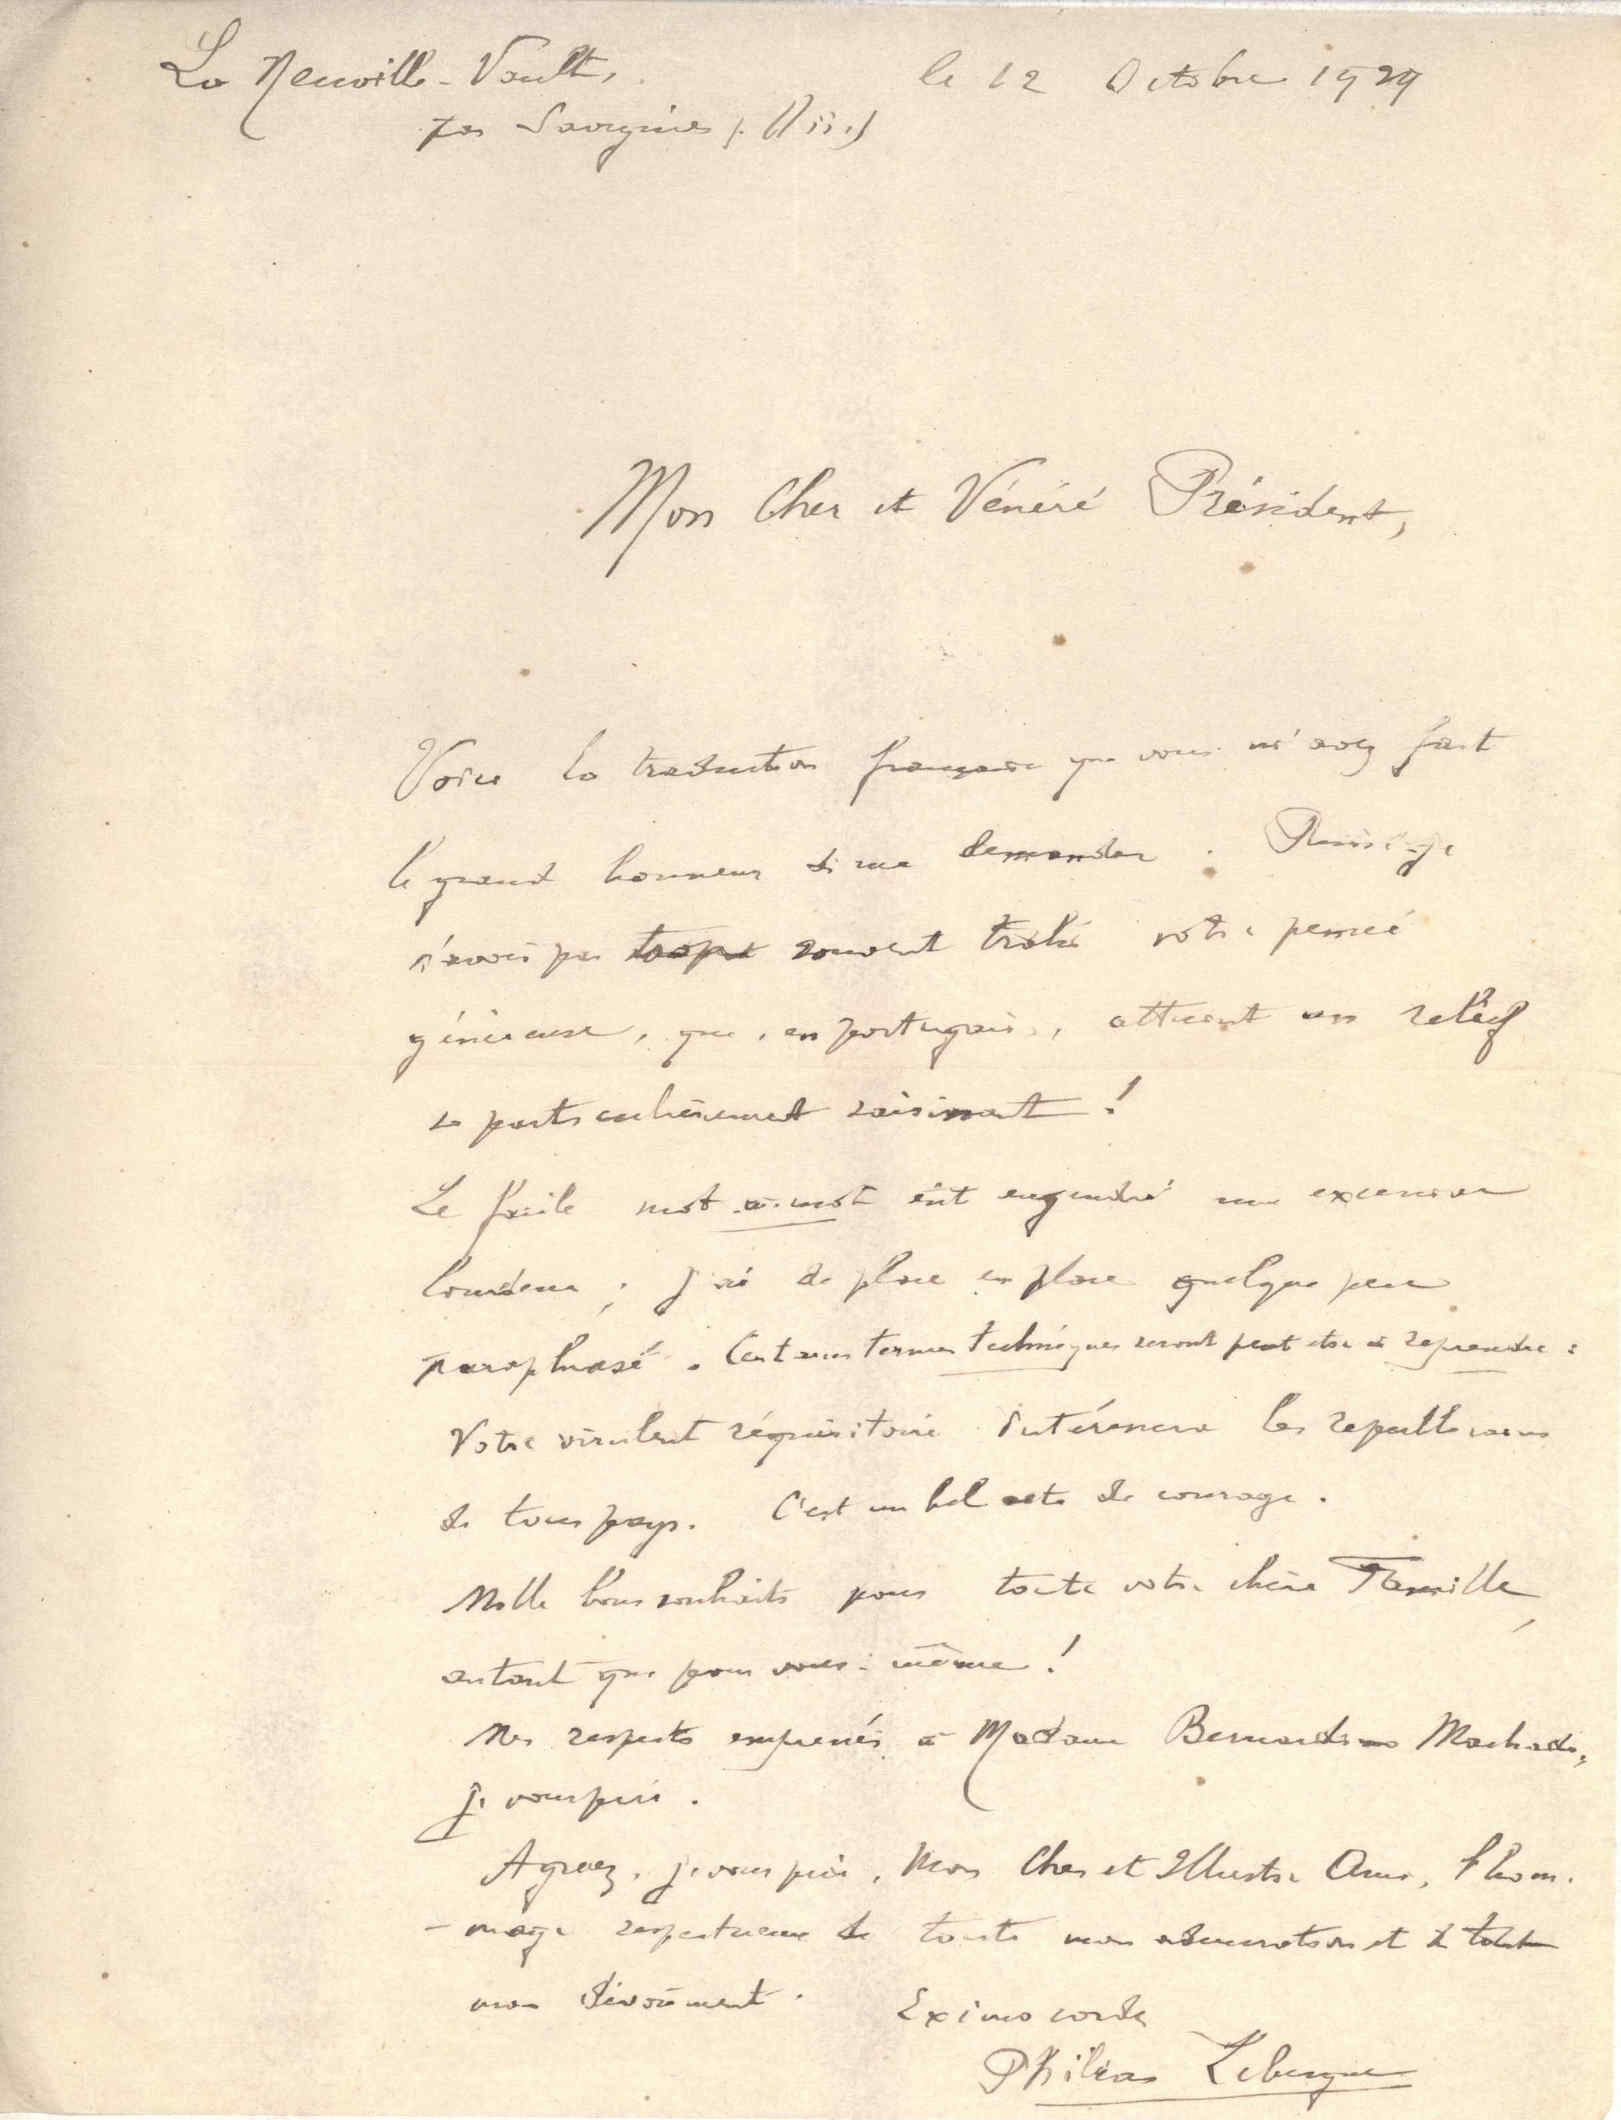 La Neuville-Vault, le 12 Octobre 1929
par Savignies (Oise)
Mon Cher et Vénéré Président,
Voici la traduction française que vous m'avez fait
le grand honneur de me demander. Puissé-je
n'avoir pas souvent trahi votre pensée
généreuse, que, en portugais, atteint un relief
particulièrement saisissant!
Le facile mot-à-mot eût engendré une excessive
lourdeur; j'ai de place en place quelque peu
paraphrasé. Certains termes techniques seront peut être à reprendre:
Votre virulent réquisitoire intéressera les republicains
de tous pays. C'est un bel acte de courage.
Mille bons souhaits pour toute votre chère Famille,
autant que pour vous-même!
Mes respects empressés à Madame Bernardino Machado,
je vous prie.
Agréez, je vous prie, Mon Cher et Illustre Ami, l'hom-
-mage respectueux de toute mon admiration et de tout
mon dévoûment.
Ex imo corde
Philéas Lebesgue